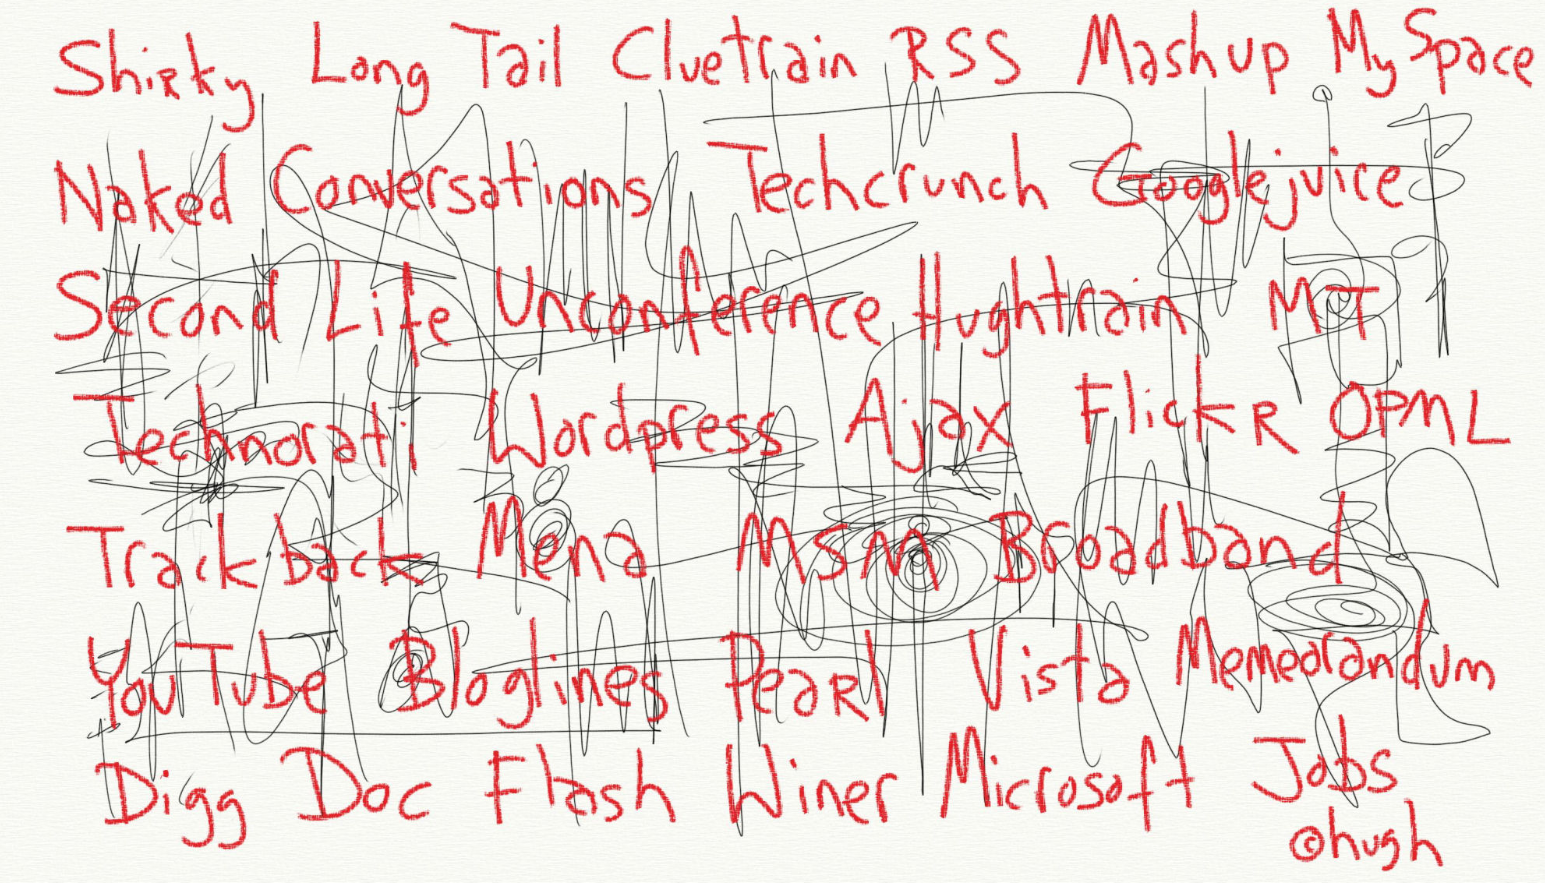 Shirky Long Tail Cluetrain RSS Mashup MySpace
Naked Conversations Techcrunch Googlejuice
Second Life Unconference Hughtrain MT
Technorati Wordpress Ajax FlickR OPML
Trackback Mena MSM Broadband
YouTube Bloglines Pearl Vista Memeorandum
Digg Doc Flash Winer Microsoft Jobs
©hugh